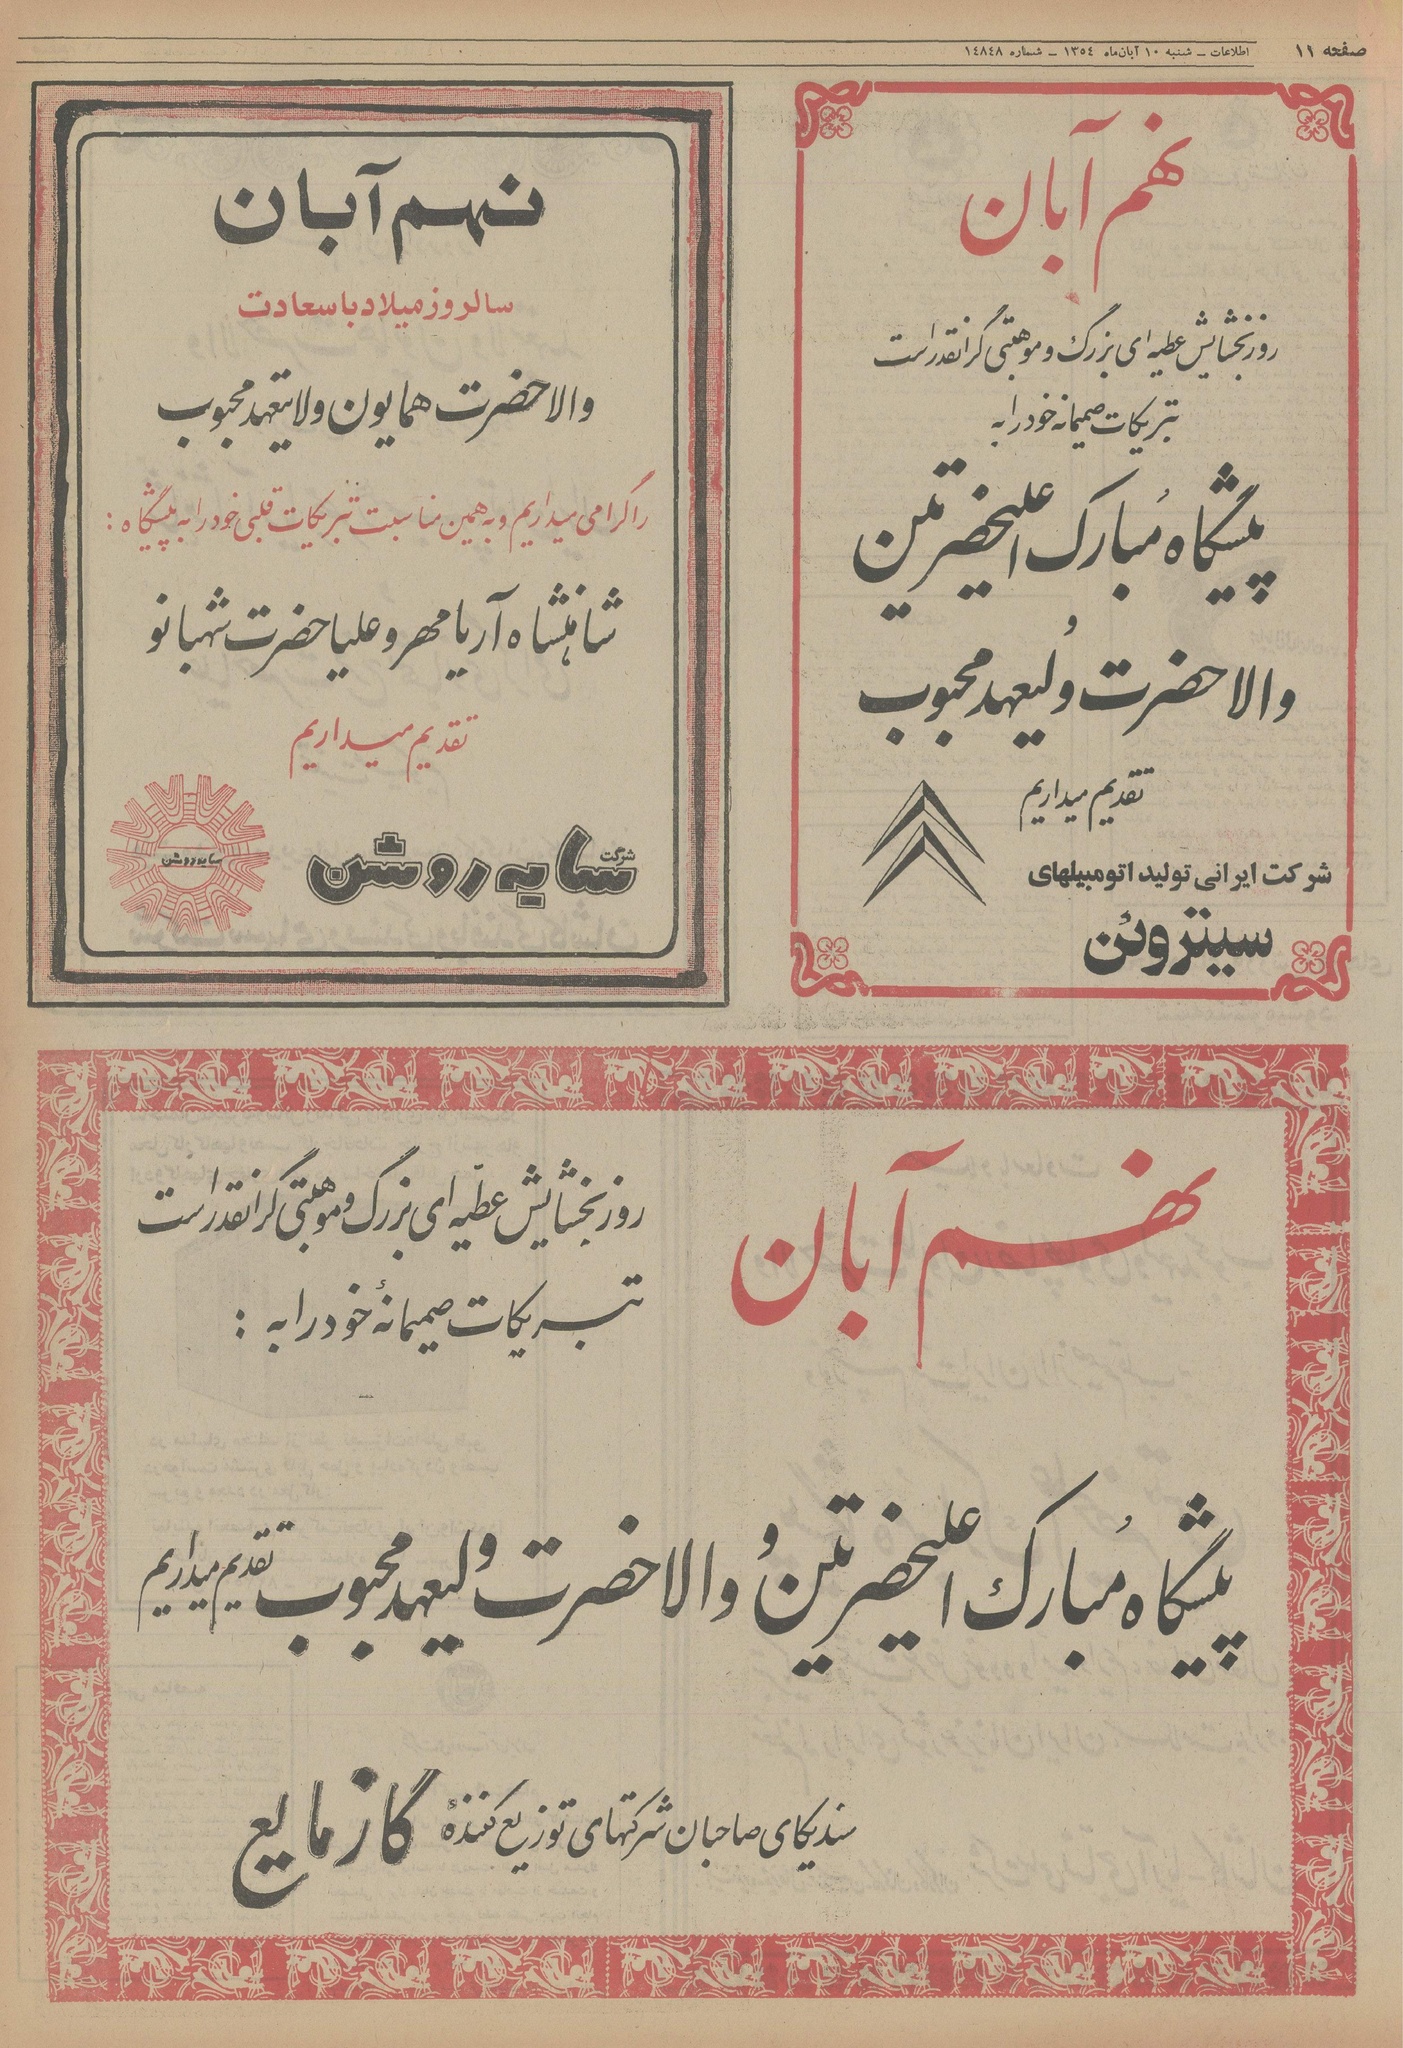 صفحه ۱۱
اطلاعات ــ شنبه ۱۰ آبان‌ماه ۱۳۵٤ ــ شماره ۱٤۸٤۸
نهم آبان
روز بخشایش عطیه ای بزرگ و موهبتی گرانقدر است
تبریکات صمیمانه خود را به
پیشگاه مبارک اعلیحضرتین
و
والاحضرت ولیعهد محبوب
تقدیم میداریم
شرکت ایرانی تولید اتومبیلهای
سیتروئن
نهم آبان
سالروز میلاد با سعادت
والاحضرت همایون ولایتعهد محبوب
را گرامی میداریم و به همین مناسبت تبریکات قلبی خود را به پیشگاه :
شاهنشاه آریامهر و علیاحضرت شهبانو
تقدیم میداریم
شرکت
سایه روشن
سایه روشن
نهم آبان
روز بخشایش عطیّه ای بزرگ و موهبتی گرانقدر است
تبریکات صمیمانهٔ خود را به :
پیشگاه مُبارک اعلیحضرتین و والاحضرت ولیعهد محبوب تقدیم میداریم
سندیکای صاحبان شرکتهای توزیع کنندهٔ گاز مایع